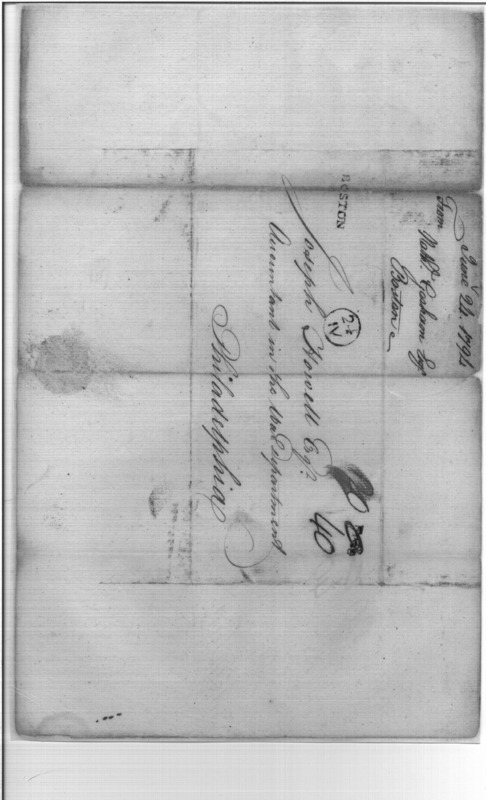 June 24. 1794
From
Nathl. Gorham Esqr
Boston
BOSTON
24
IV
40
Joseph Howell Esqr.
Accountant in the War Department
Philadelphia